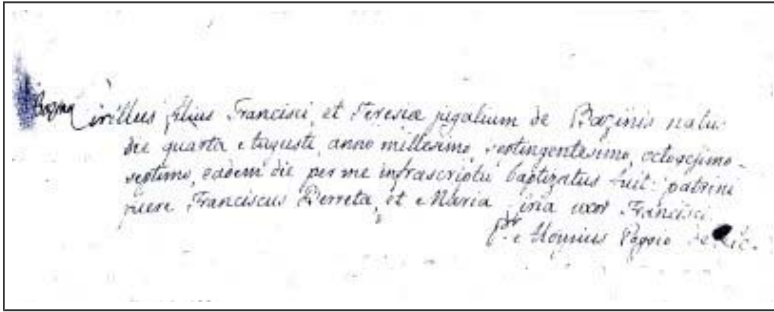 Cirillus filius Francisci, et Teresiæ jugalium de Bazinis natus
die quarta Augusti, anno millesimo, septingentesimo, octogesimo
septimo, eadem die per me infrascriptu baptizatus fuit: patrini
fuere Franciscus Perreta, et Maria uxor Francisci